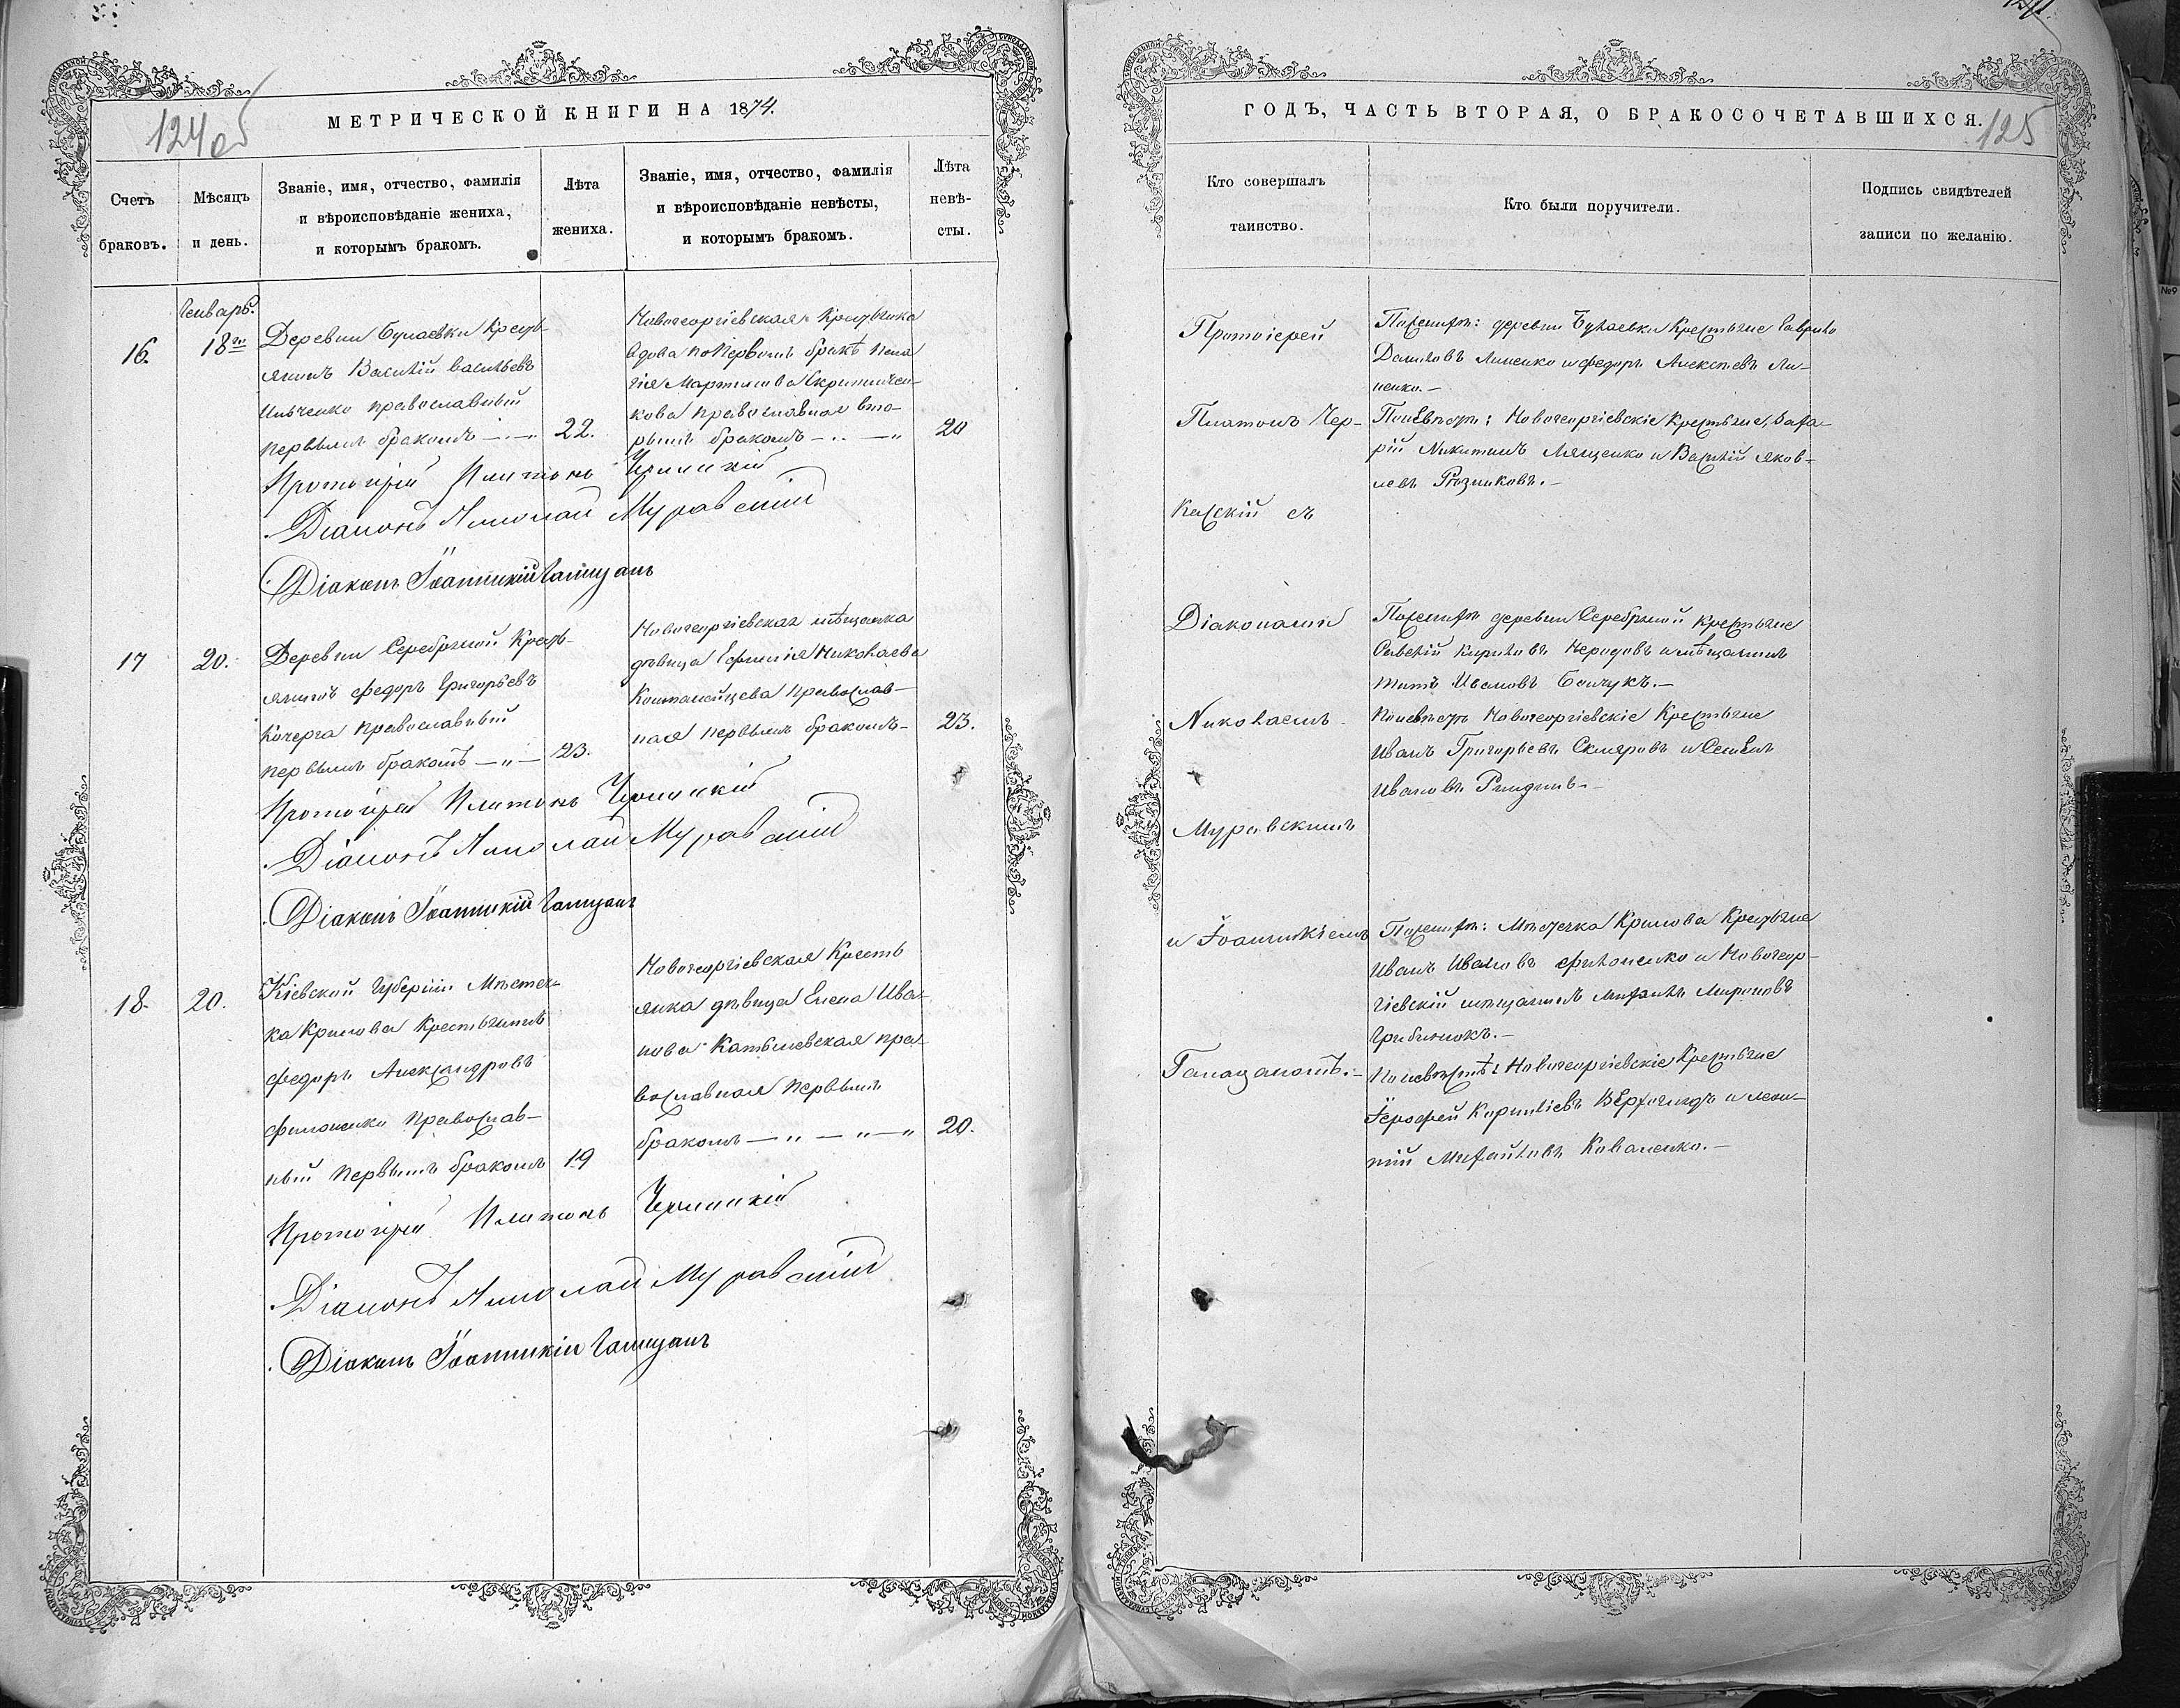 124об
МЕТРИЧЕСКОЙ КНИГИ НА 1874.
Счетъ
браковъ.
Мѣсяцъ
и день.
Званіе, имя, отчество, фамилія
и вѣроисповѣданіе жениха,
и которымъ бракомъ.
Лѣта
жениха.
Званіе, имя, отчество, фамилія
и вѣроисповѣданіе невѣсты,
и которымъ бракомъ.
Лѣта
невѣ-
сты.
16.
Генварь.
18го
Деревни Булаевки Кресть-
янинъ Василій Васильевъ
Ильченко православный
первымъ бракомъ
22.
Новогеоргіевская Крестьянка
вдова по первомъ бракѣ Пела
гія Мартинова
кова православная вто-
рымъ бракомъ
20
Протоіерей Платонъ
Діаконъ Николай Муравскій
Діаконъ Іоанникій Галацанъ
17
20.
Деревни Серебряной Кресть-
янинъ Федоръ Григорьевъ
Кочерга православный
первымъ бракомъ
23.
Новогеоргіевская мѣщанка
дѣвица Николаева
православ-
ная первымъ бракомъ
23.
Протоіерей Платонъ
Діаконъ Николай Муравскій
Діаконъ Іоанникій Галацанъ
18.
20.
Кіевской Губерніи Мѣстеч-
ка Крилова Крестьянинъ
Федоръ Александровъ
Филоненко Православ-
ный первымъ бракомъ
19
Новогеоргіевская Кресть
янка дѣвица Елена Ива-
нова пра-
вославная первымъ
бракомъ
20.
Протоіерей Платонъ
Діаконъ Николай Муравскій
Діаконъ Іоанникій Галацанъ
ГОДЪ, ЧАСТЬ ВТОРАЯ, О БРАКОСОЧЕТАВШИХСЯ.
125
Кто совершалъ
таинство.
Кто были поручители.
Подпись свидѣтелей
записи по желанію.
Протоіерей
Платонъ Чер-
съ
Діаконами
Николаемъ
Муравскимъ
и Іоанникіемъ
Галацаномъ.-
По женихѣ: деревни Булаевки Крестьяне Гаврило
Даниловъ Линенко и Федоръ Алексѣевъ Ли-
ненко.-
По невѣстѣ: Новогеоргіевскіе Крестьяне, Заха-
рій Никитинъ Лященко и Василій Яков-
левъ Рѣзниковъ.-
По женихѣ деревни Серебряной крестьяне
Савелій Кириловъ и мѣщанинъ
Титъ Ивановъ
По невѣстѣ Новогеоргіевскіе Крестьяне
Иванъ Григорьевъ Скляровъ и Семенъ
Ивановъ
По женихѣ: Мѣстечка Крилова Крестьяне
Иванъ Ивановъ Филоненко и Новогеор-
гіевскій мѣщанинъ Михаилъ Мироновъ
Грибинюкъ.-
По невѣстѣ: Новогеоргіевскіе Крестьяне
Іерофей Корниліевъ и Леон-
тій Михайловъ Коваленко.-